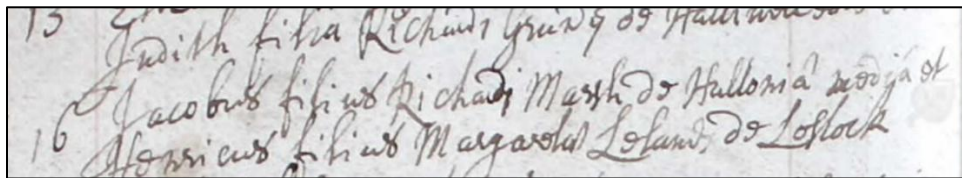 13
Judith filia Richardi Grundy de Halliwell
Jacobus filius Richardi Marsh de Hultonia media et
16 Henricus filius Margaretæ Leland de Lostock